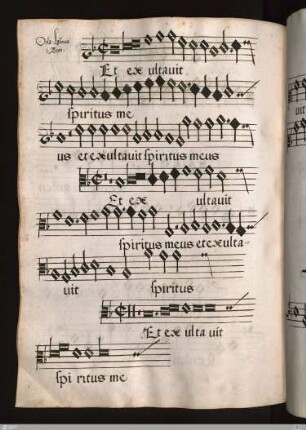 Et ex ultavit
spiritus me
us et exultavit spiritus meus
Et ex ultavit
spiritus meus et exulta-
vit spiritus
Et ex ulta vit
spi ritus me